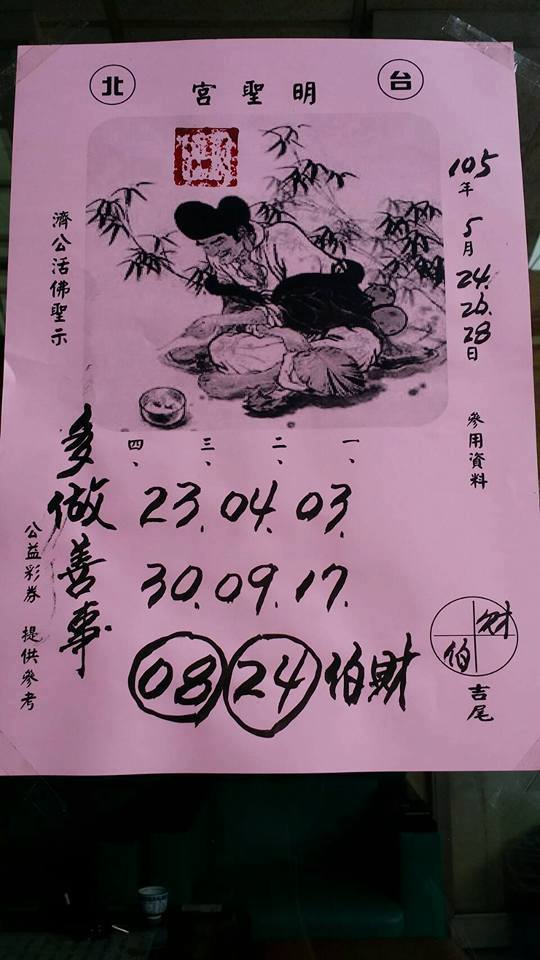 台北
明聖宮
105年5月24.26.28日
參用資料
濟公活佛聖示
一、二、三、四、
23.04.03.
30.09.17.
08 24 伯財
多做善事
公益彩券 提供參考
財
伯
吉尾